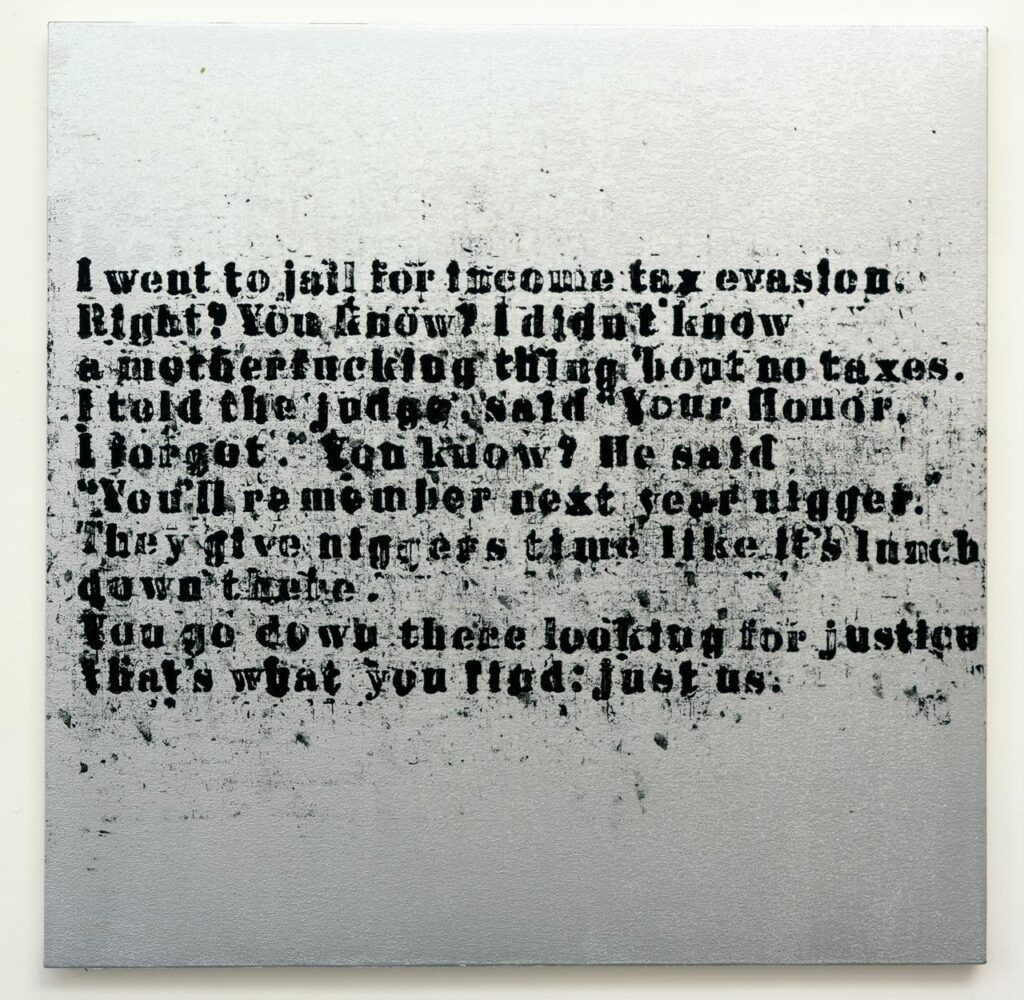 I went to jail for income tax evasion.
Right? You know? I didn't know
a motherfucking thing 'bout no taxes.
I told the judge, said "Your Honor,
I forgot." You know? He said
"You'll remember next year nigger."
They give niggers time like it's lunch
down there.
You go down there looking for justice
that's what you find: just us.